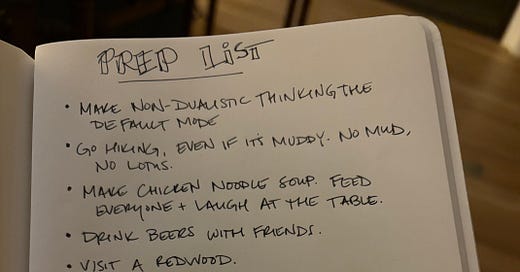 PREP LIST
• MAKE NON-DUALISTIC THINKING THE
DEFAULT MODE
• GO HIKING, EVEN IF IT'S MUDDY. NO MUD,
NO LOTUS.
• MAKE CHICKEN NOODLE SOUP. FEED
EVERYONE + LAUGH AT THE TABLE.
• DRINK BEERS WITH FRIENDS.
• VISIT A REDWOOD.